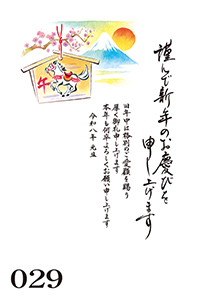 謹んで新年のお慶びを
申し上げます
旧年中は格別のご愛顧を賜り
厚く御礼申し上げます
本年も何卒よろしくお願い申し上げます
令和八年 元旦
午
029